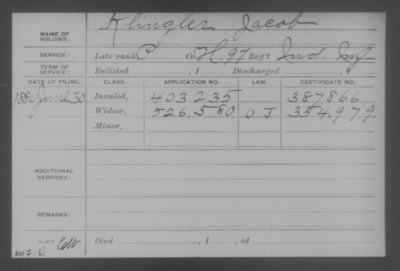 NAME OF SOLDIER: Klingler Jacob
SERVICE: Late rank P Co. H. 97 Reg't Ind. Inf.
TERM OF SERVICE: Enlisted , 1 Discharged , 1
DATE OF FILING. CLASS. APPLICATION NO. LAW. CERTIFICATE NO.
1880 June 30 Invalid, 403.235 387,866
Widow, 526.580 O J 354,979
Minor,
ADDITIONAL SERVICES:
REMARKS:
Died , 1 , at